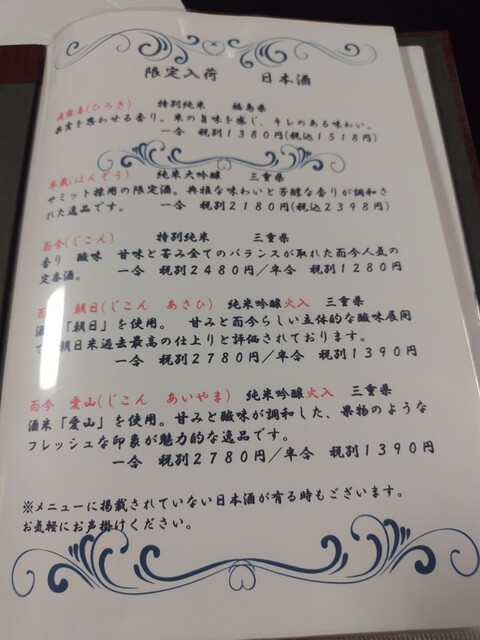 限定入荷　日本酒
(ひろき)　特別純米　福島県
果実を思わせる香り。米の旨味を感じ、キレのある味わい。
一合　税別1380円(税込1518円)
半蔵(はんぞう)　純米大吟醸　三重県
サミット採用の限定酒。典雅な味わいと芳醇な香りが調和さ
れた逸品です。　一合　税別2180円(税込2398円)
而今(じこん)　特別純米　三重県
香り　酸味　甘味と苦み全てのバランスが取れた而今人気の
定番酒。　一合　税別2480円／半合　税別1280円
而　朝日(じこん　あさひ)　純米吟醸火入　三重県
酒　「朝日」を使用。　甘みと而今らしい立体的な酸味展開
で　朝日米過去最高の仕上りと評価されております。
一合　税別2780円／半合　税別1390円
而今　愛山(じこん　あいやま)　純米吟醸火入　三重県
酒米「愛山」を使用。甘みと酸味が調和した、果物のような
フレッシュな印象が魅力的な逸品です。
一合　税別2780円／半合　税別1390円
※メニューに掲載されていない日本酒が有る時もございます。
お気軽にお声掛けください。